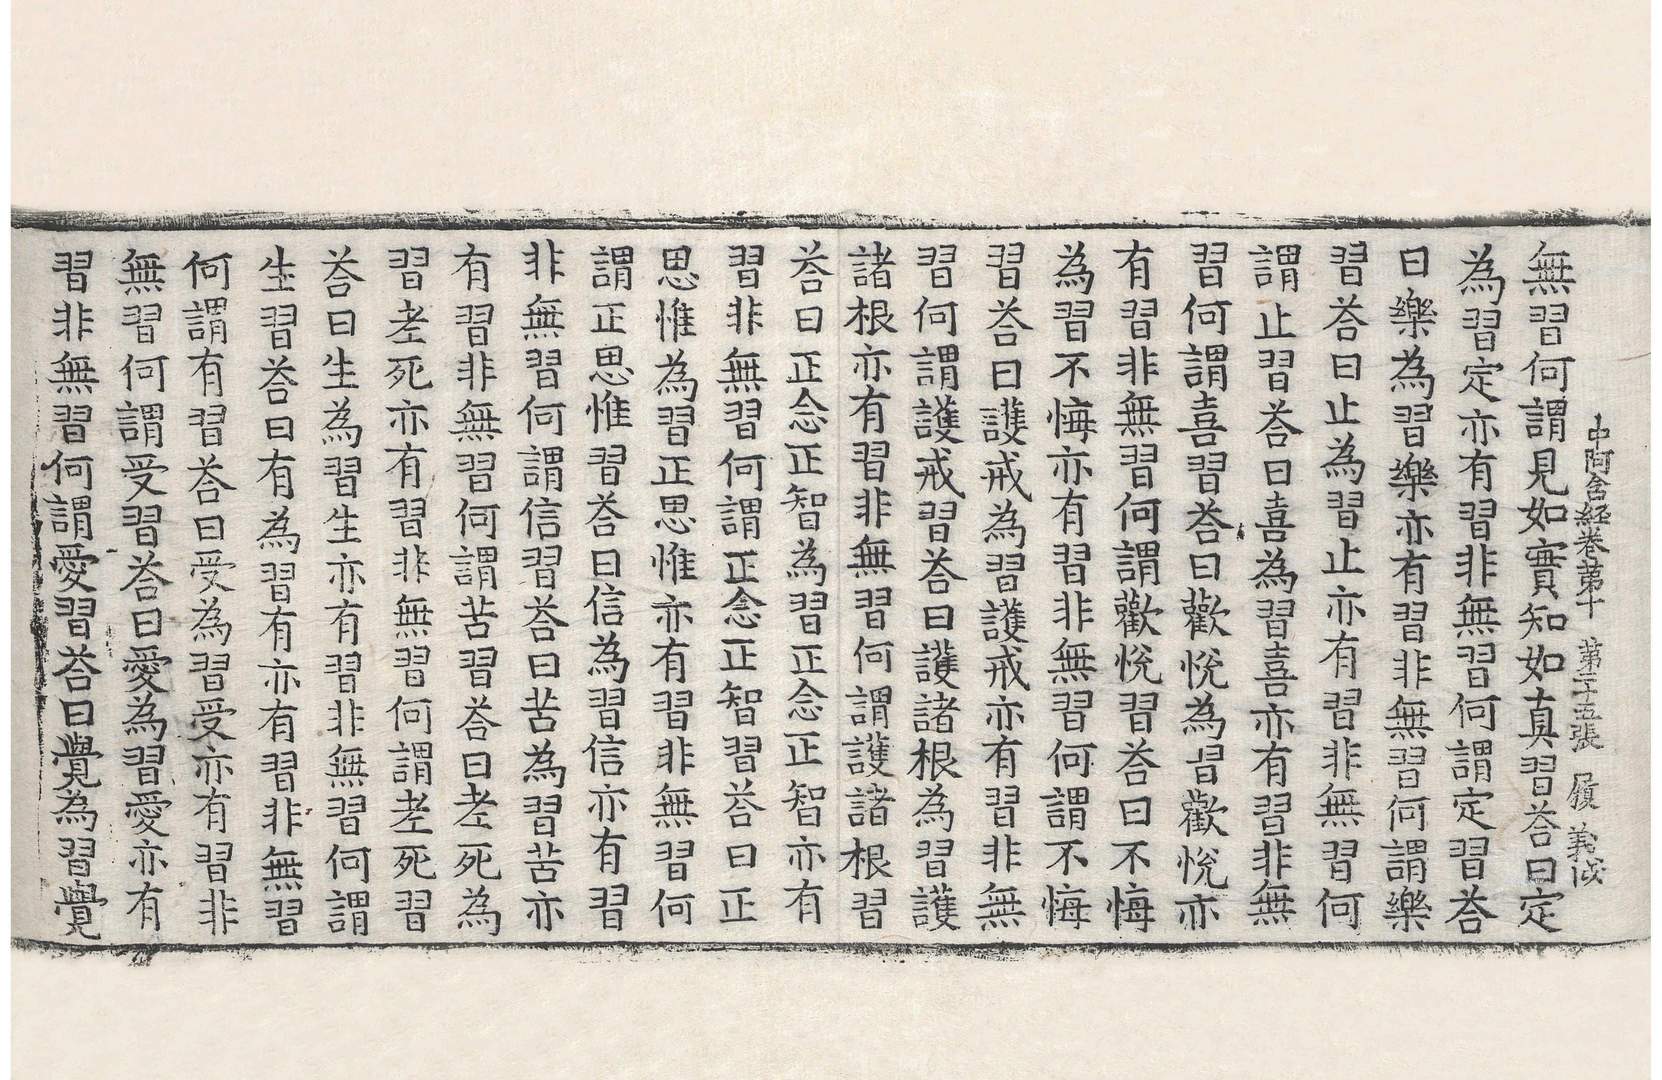 中阿含経卷苐十　第二十五張　履　義成
無習何謂見如實知如真習荅曰定
為習定亦有習非無習何謂定習荅
曰樂為習樂亦有習非無習何謂樂
習荅曰止為習止亦有習非無習何
謂止習荅曰喜為習喜亦有習非無
習何謂喜習荅曰歡悅為習歡悅亦
有習非無習何謂歡悅習荅曰不悔
為習不悔亦有習非無習何謂不悔
習荅曰護戒為習護戒亦有習非無
習何謂護戒習荅曰護諸根為習護
諸根亦有習非無習何謂護諸根習
荅曰正念正智為習正念正智亦有
習非無習何謂正念正智習荅曰正
思惟為習正思惟亦有習非無習何
謂正思惟習荅曰信為習信亦有習
非無習何謂信習荅曰苦為習苦亦
有習非無習何謂苦習荅曰老死為
習老死亦有習非無習何謂老死習
荅曰生為習生亦有習非無習何謂
生習荅曰有為習有亦有習非無習
何謂有習荅曰受為習受亦有習非
無習何謂受習荅曰愛為習愛亦有
習非無習何謂愛習荅曰覺為習覺